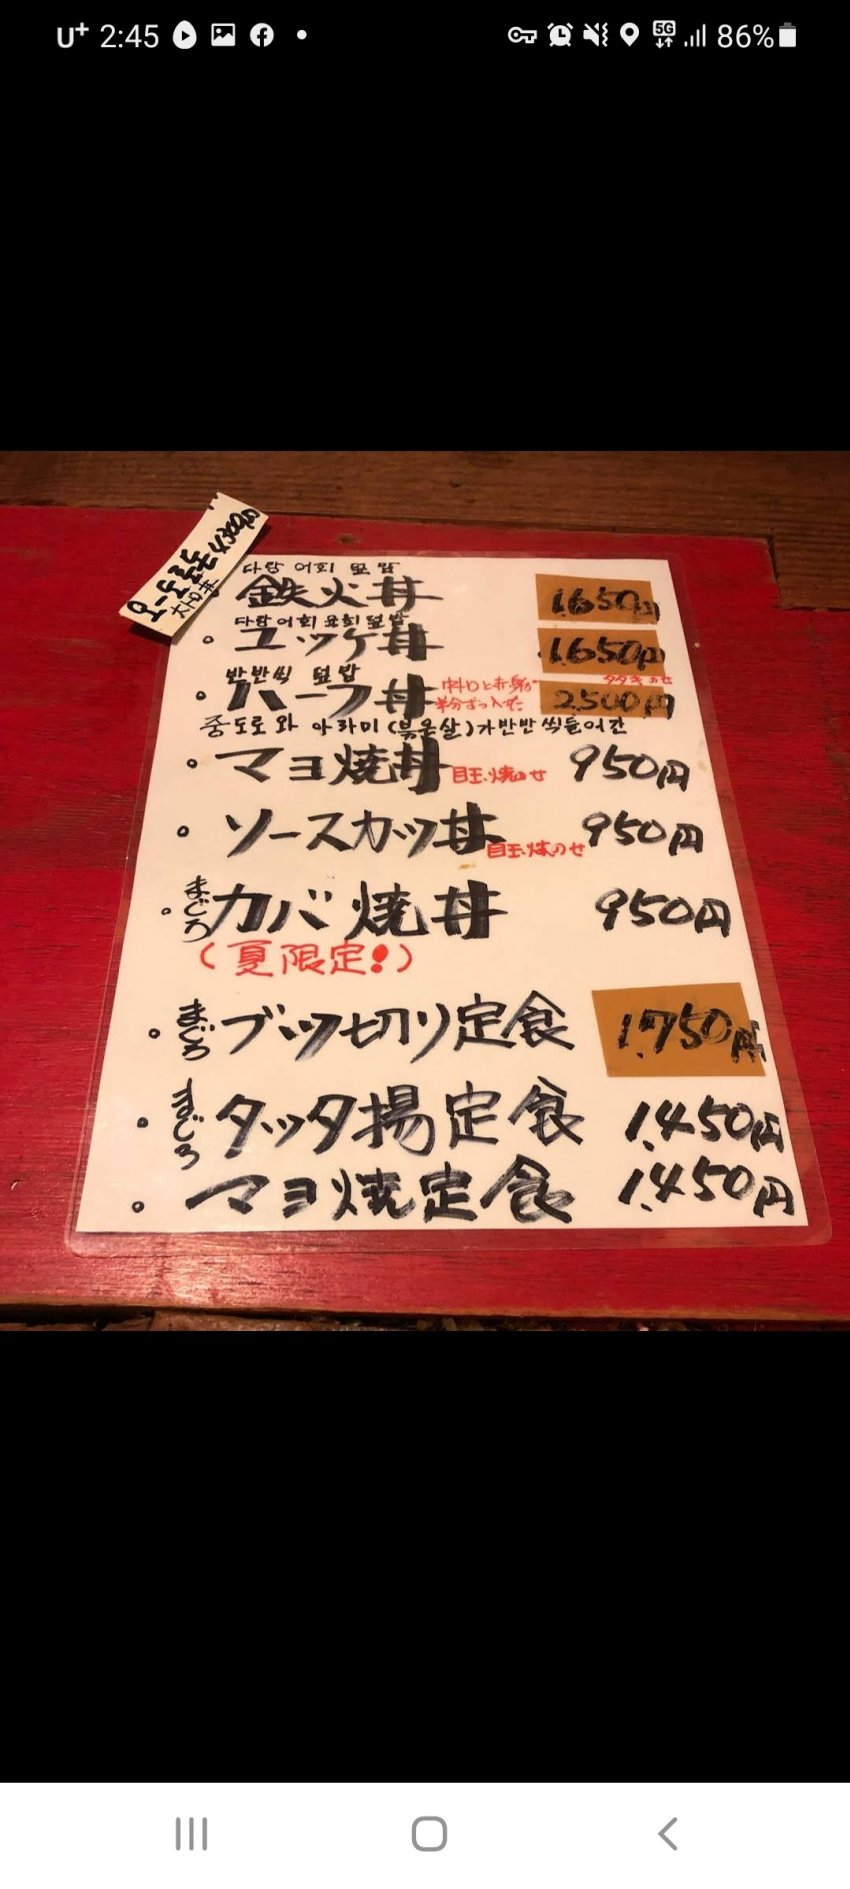 U+ 2:45
5G 86%
오-도로돈 4300円
大トロ丼
다랑어회 덮밥
鉄火丼 1.650円
다랑어회 육회 덮밥
ユッケ丼 1.650円
반반씩 덮밥
ハーフ丼 中トロと赤身が
半分ずつ入った
タタキのせ
2.500円
중도로와 아카미(붉은살)가반반씩들어간
マヨ焼丼 目玉焼のせ 950円
ソースカツ丼 目玉焼のせ 950円
まぐろ カバ焼丼 950円
(夏限定!)
まぐろ ブツ切り定食 1.750円
まぐろ タツタ揚定食 1.450円
マヨ焼定食 1.450円